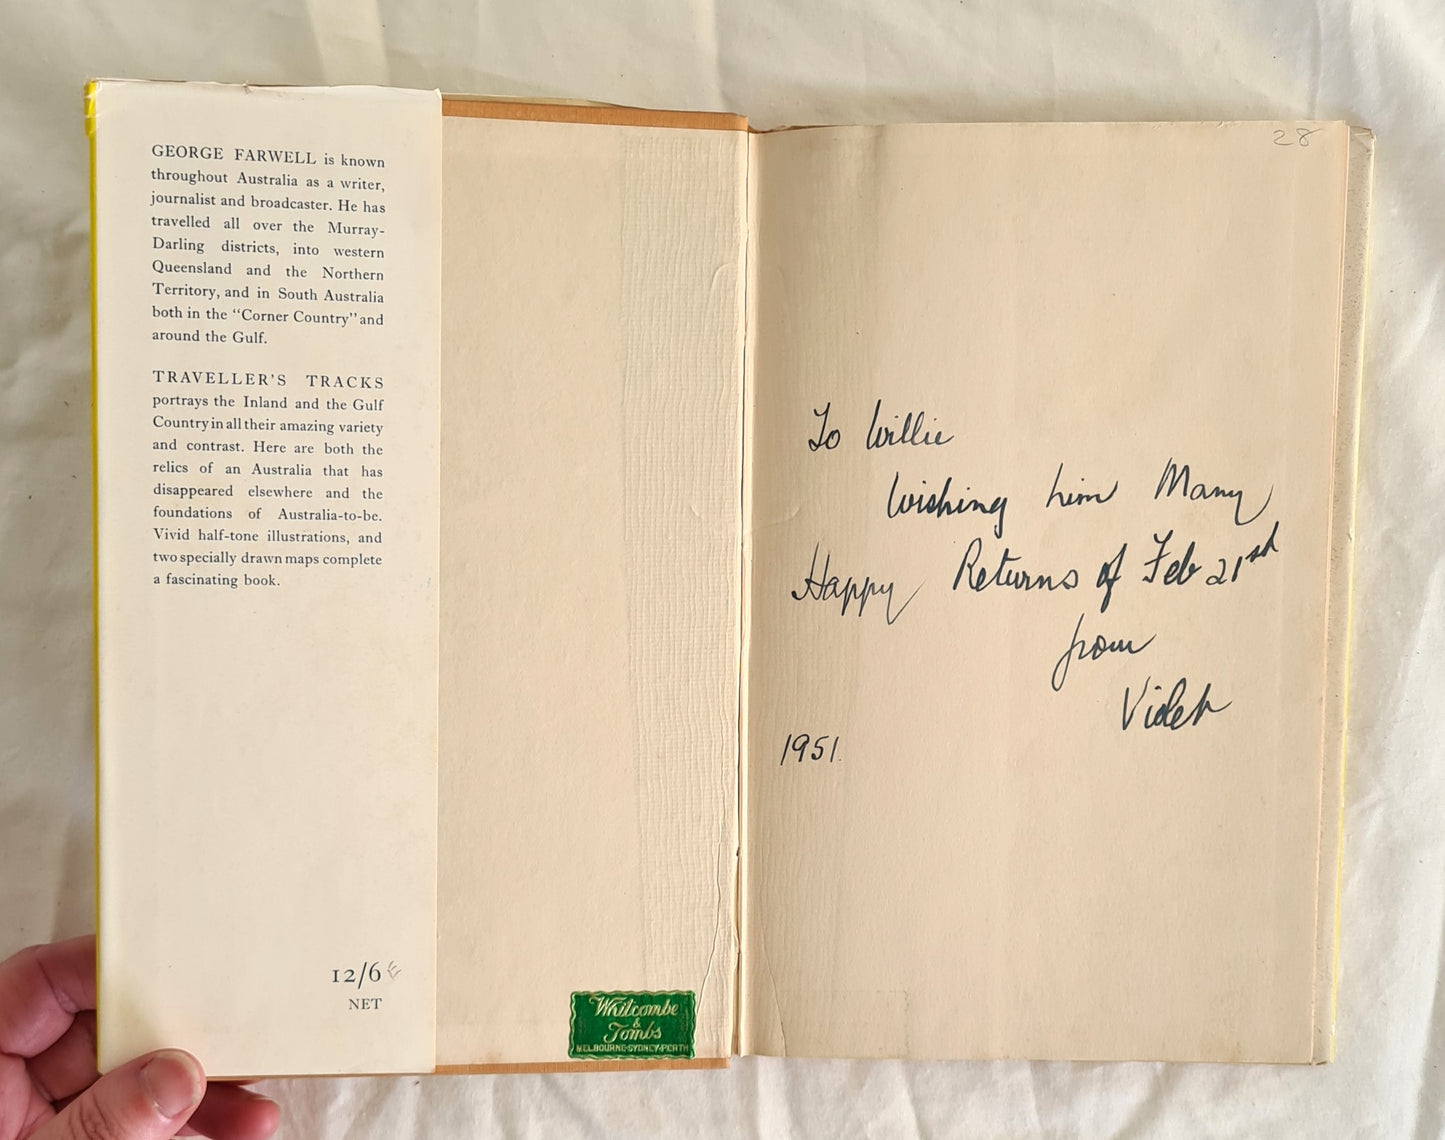 GEORGE FARWELL is known
throughout Australia as a writer,
journalist and broadcaster. He has
travelled all over the Murray-
Darling districts, into western
Queensland and the Northern
Territory, and in South Australia
both in the “Corner Country” and
around the Gulf.
TRAVELLER'S TRACKS
portrays the Inland and the Gulf
Country in all their amazing variety
and contrast. Here are both the
relics of an Australia that has
disappeared elsewhere and the
foundations of Australia-to-be.
Vivid half-tone illustrations, and
two specially drawn maps complete
a fascinating book.
12/6
NET
Whitcombe
&
Tombs
MELBOURNE·SYDNEY·PERTH
28
To Willie
Wishing him Many
Happy Returns of Feb 21st
from
Violet
1951.